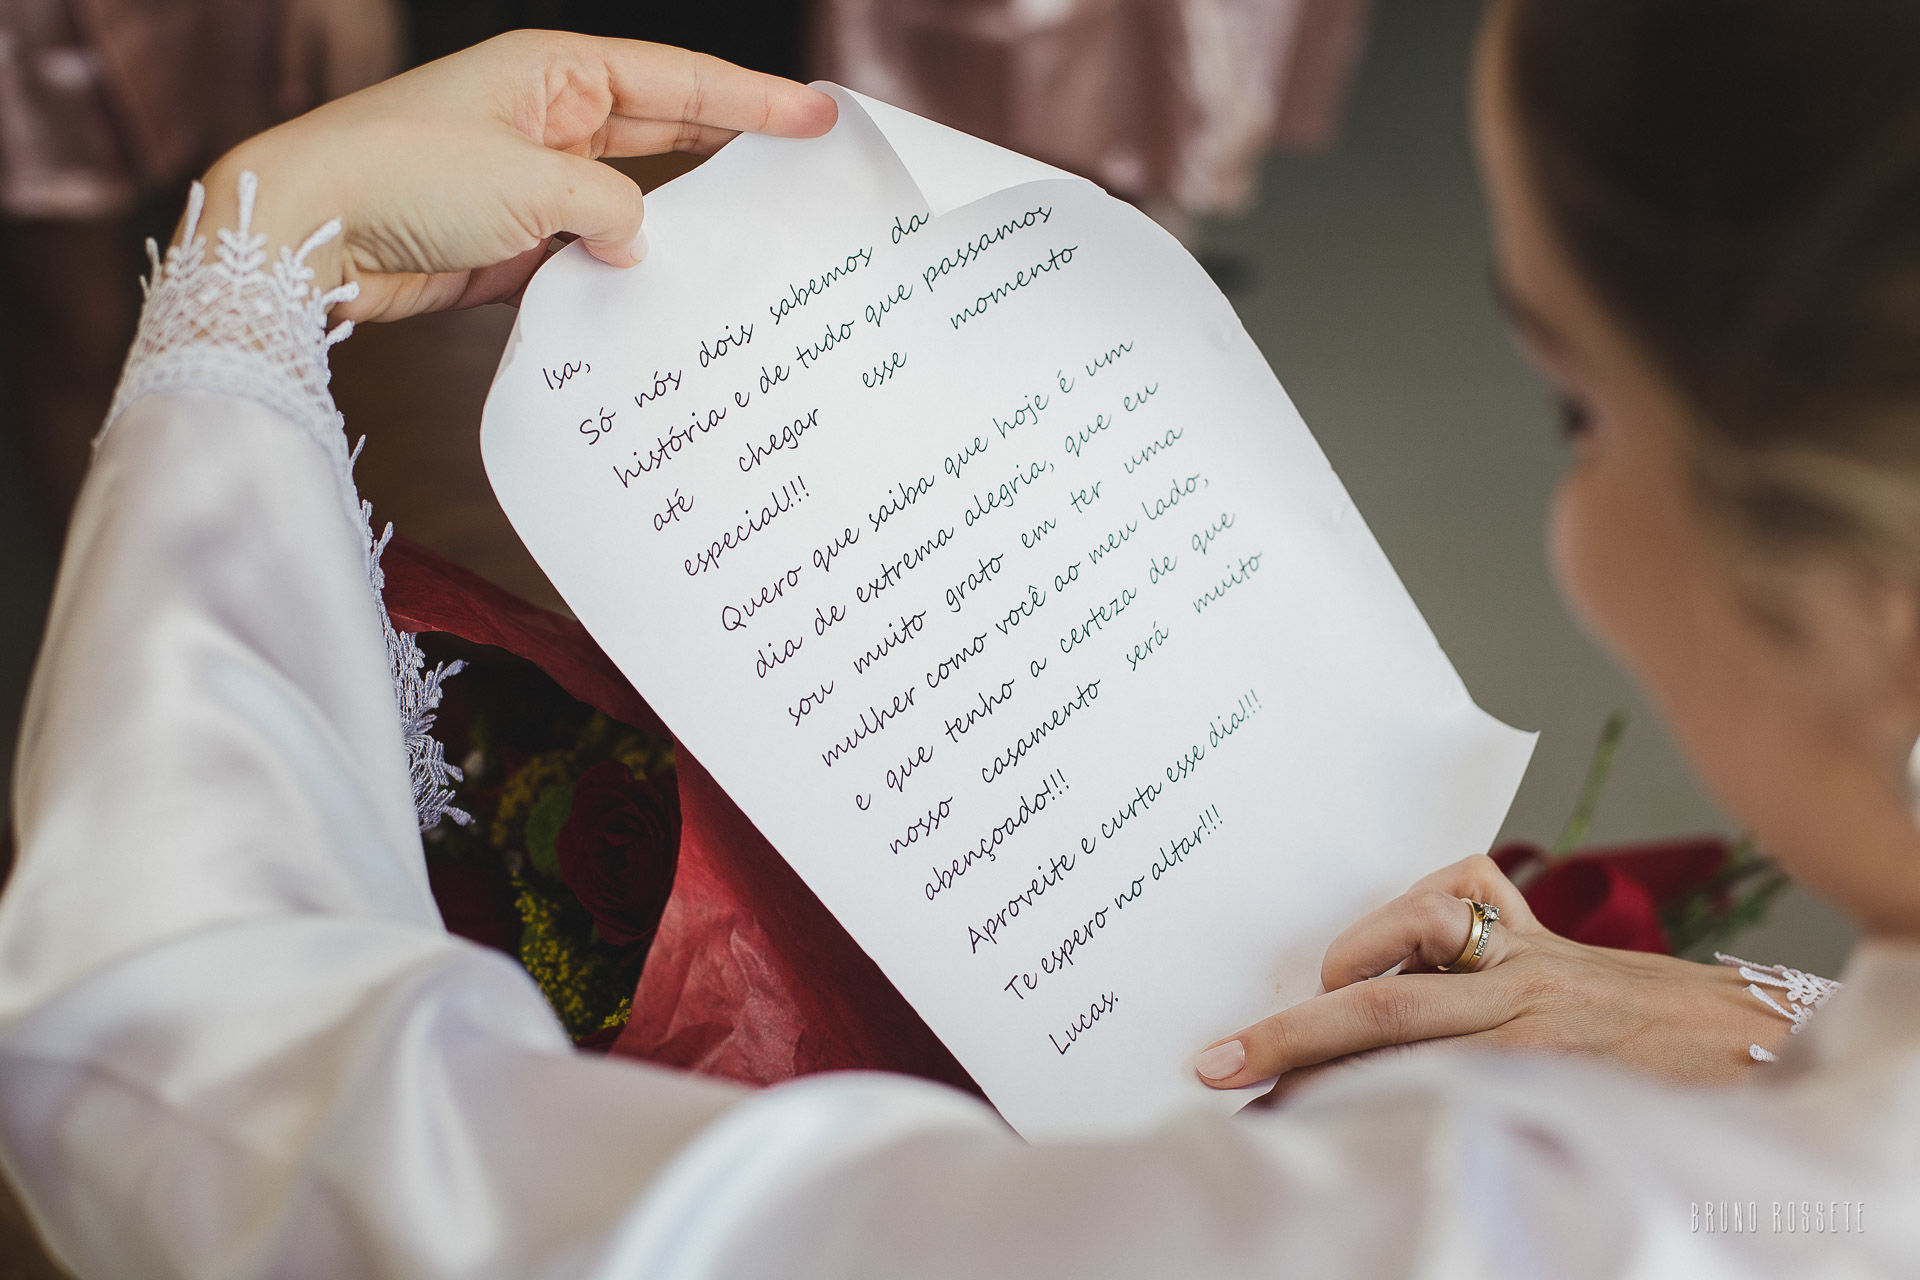 Isa,
Só nós dois sabemos da
história e de tudo que passamos
até chegar esse momento
especial!!!
Quero que saiba que hoje é um
dia de extrema alegria, que eu
sou muito grato em ter uma
mulher como você ao meu lado,
e que tenho a certeza de que
nosso casamento será muito
abençoado!!!
Aproveite e curta esse dia!!!
Te espero no altar!!!
Lucas.
BRUNO ROSSETE